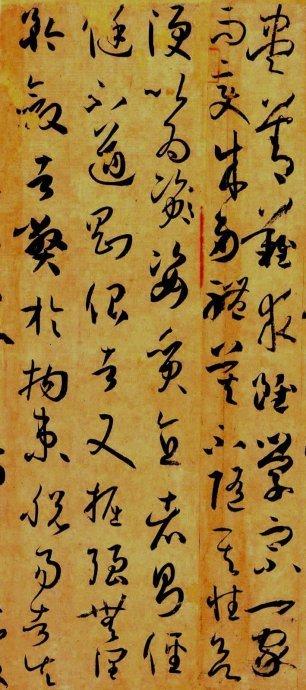 盡善難求雖學宗一家
而變成多體莫不隨其性欲
便以為姿質直者則俓
侹不遒剛佷者又掘強無潤
矜斂者弊於拘束脫易者失